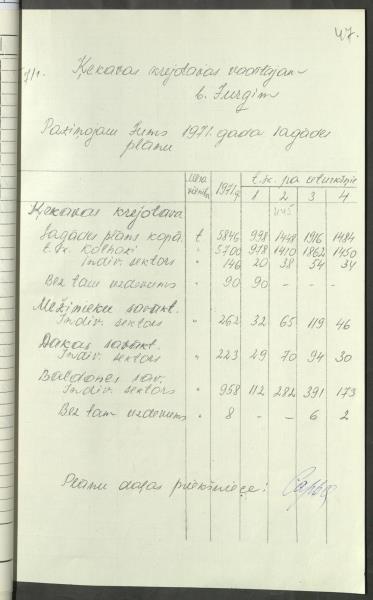 47.
Ķekavas krejotavas vadītājam
b. Jurgim
Paziņojam Jums 1971. gada sagādes
plānu
Mēra vienība 1971.g t.sk. pa ceturkšņiem
1 2 3 4
Ķekavas krejotava
Sagādes plāns kopā t 5846 998 1448 1916 1484
t.sk. Kolhozi " 5700 978 1410 1862 1450
Indiv. sektors " 146 20 38 54 34
Bez tam uzdevums " 90 90 - - -
Mežinieku savākt.
Indiv. sektors " 262 32 65 119 46
Dakas savākt.
Indiv. sektors " 223 29 70 94 30
Baldones sav.
Indiv. sektors " 958 112 282 391 173
Bez tam uzdevums " 8 - - 6 2
Plānu daļas priekšniece: